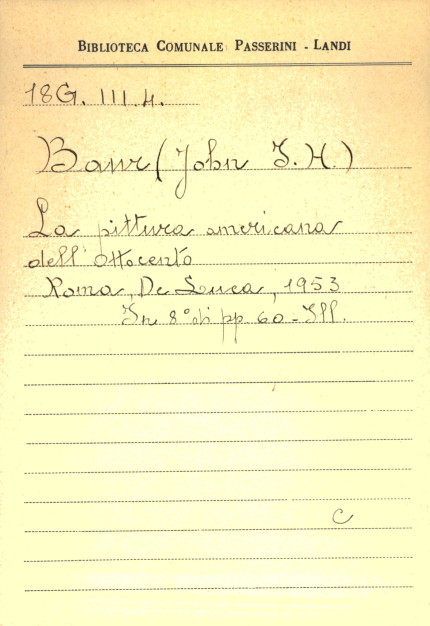 BIBLIOTECA COMUNALE PASSERINI - LANDI
18G. III.4.
Baur (John I. H.)
La pittura americana
dell'Ottocento
Roma, De Luca, 1953
In 8° di pp. 60 - Ill.
C